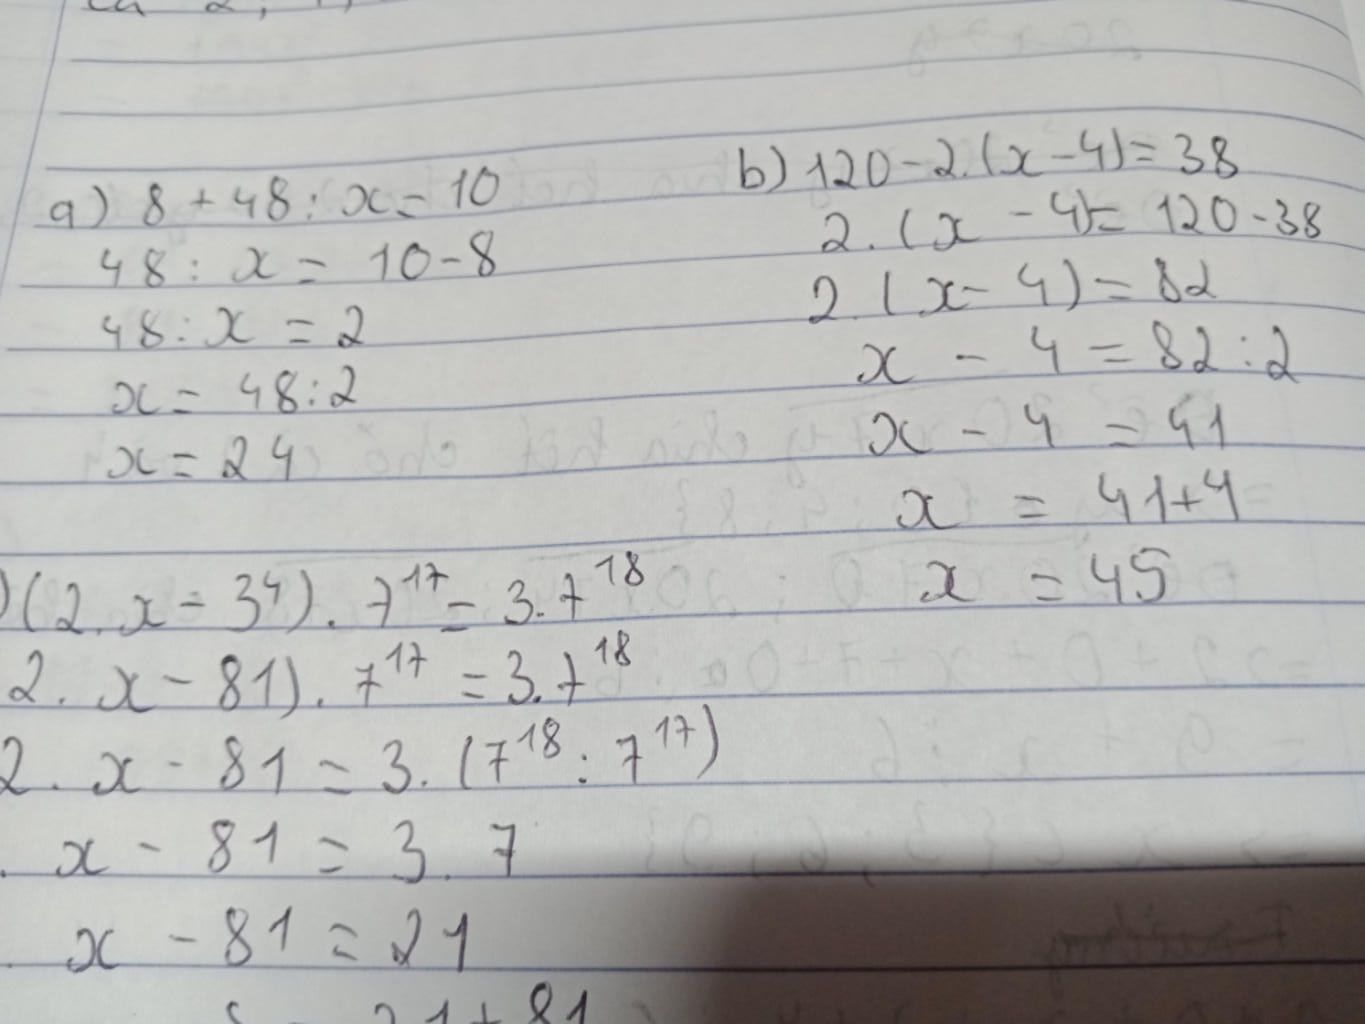 a) 8 + 48 : x = 10
48 : x = 10 - 8
48 : x = 2
x = 48 : 2
x = 24
b) 120 - 2.(x - 4) = 38
2.(x - 4) = 120 - 38
2.(x - 4) = 82
x - 4 = 82 : 2
x - 4 = 41
x = 41 + 4
x = 45
)(2.x - 3⁴). 7¹⁷ = 3.7¹⁸
2. x - 81). 7¹⁷ = 3.7¹⁸
2. x - 81 = 3.(7¹⁸ : 7¹⁷)
. x - 81 = 3.7
. x - 81 = 21
= 21 + 81